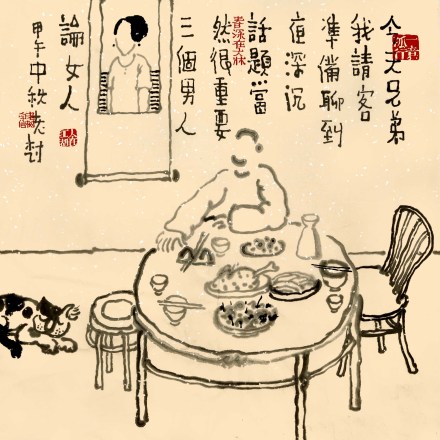 今天兄弟
我請客
準備聊到
夜深沉
話題當
然很重要
三個男人
論女人
甲午中秋老树